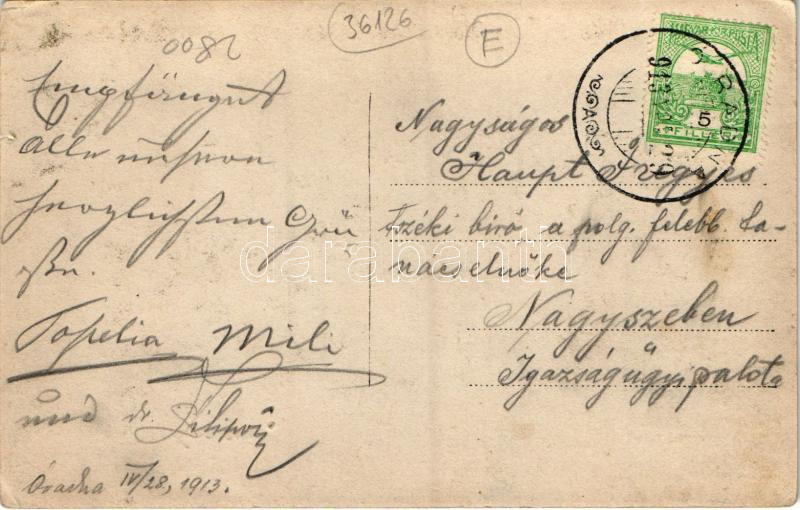 0082
36126
E
Empfänget
alle unsere
herzlichsten Grü
sse.
Mili
und dr.
IV/28, 1913.
MAGYAR KIR. POSTA
5
FILLÉR
Nagyságos
Haupt Frigyes
tszéki biró, a polg. felebb. ta-
nácselnöke
Nagyszeben
Igazságügyi palota
darabanth